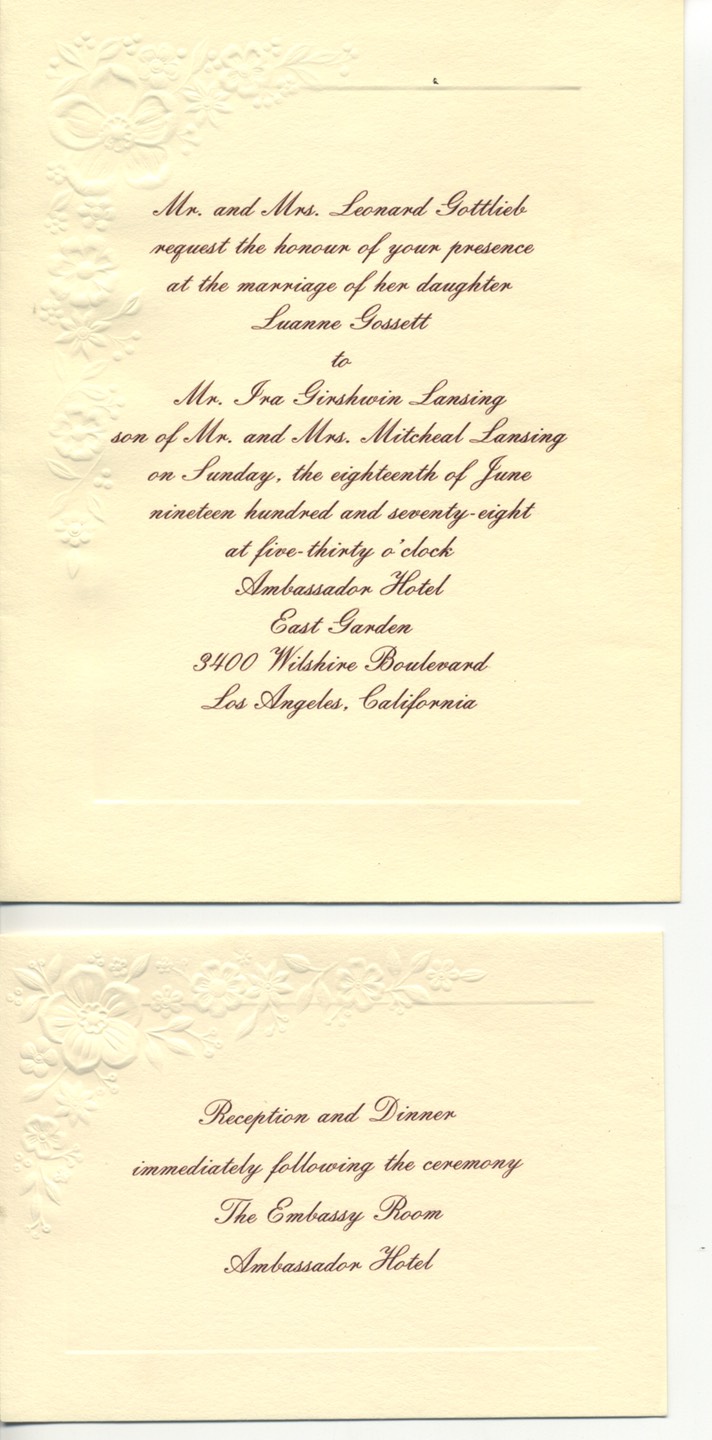 Mr. and Mrs. Leonard Gottlieb
request the honour of your presence
at the marriage of her daughter
Luanne Gossett
to
Mr. Ira Girshwin Lansing
son of Mr. and Mrs. Mitcheal Lansing
on Sunday, the eighteenth of June
nineteen hundred and seventy-eight
at five-thirty o'clock
Ambassador Hotel
East Garden
3400 Wilshire Boulevard
Los Angeles, California
Reception and Dinner
immediately following the ceremony
The Embassy Room
Ambassador Hotel